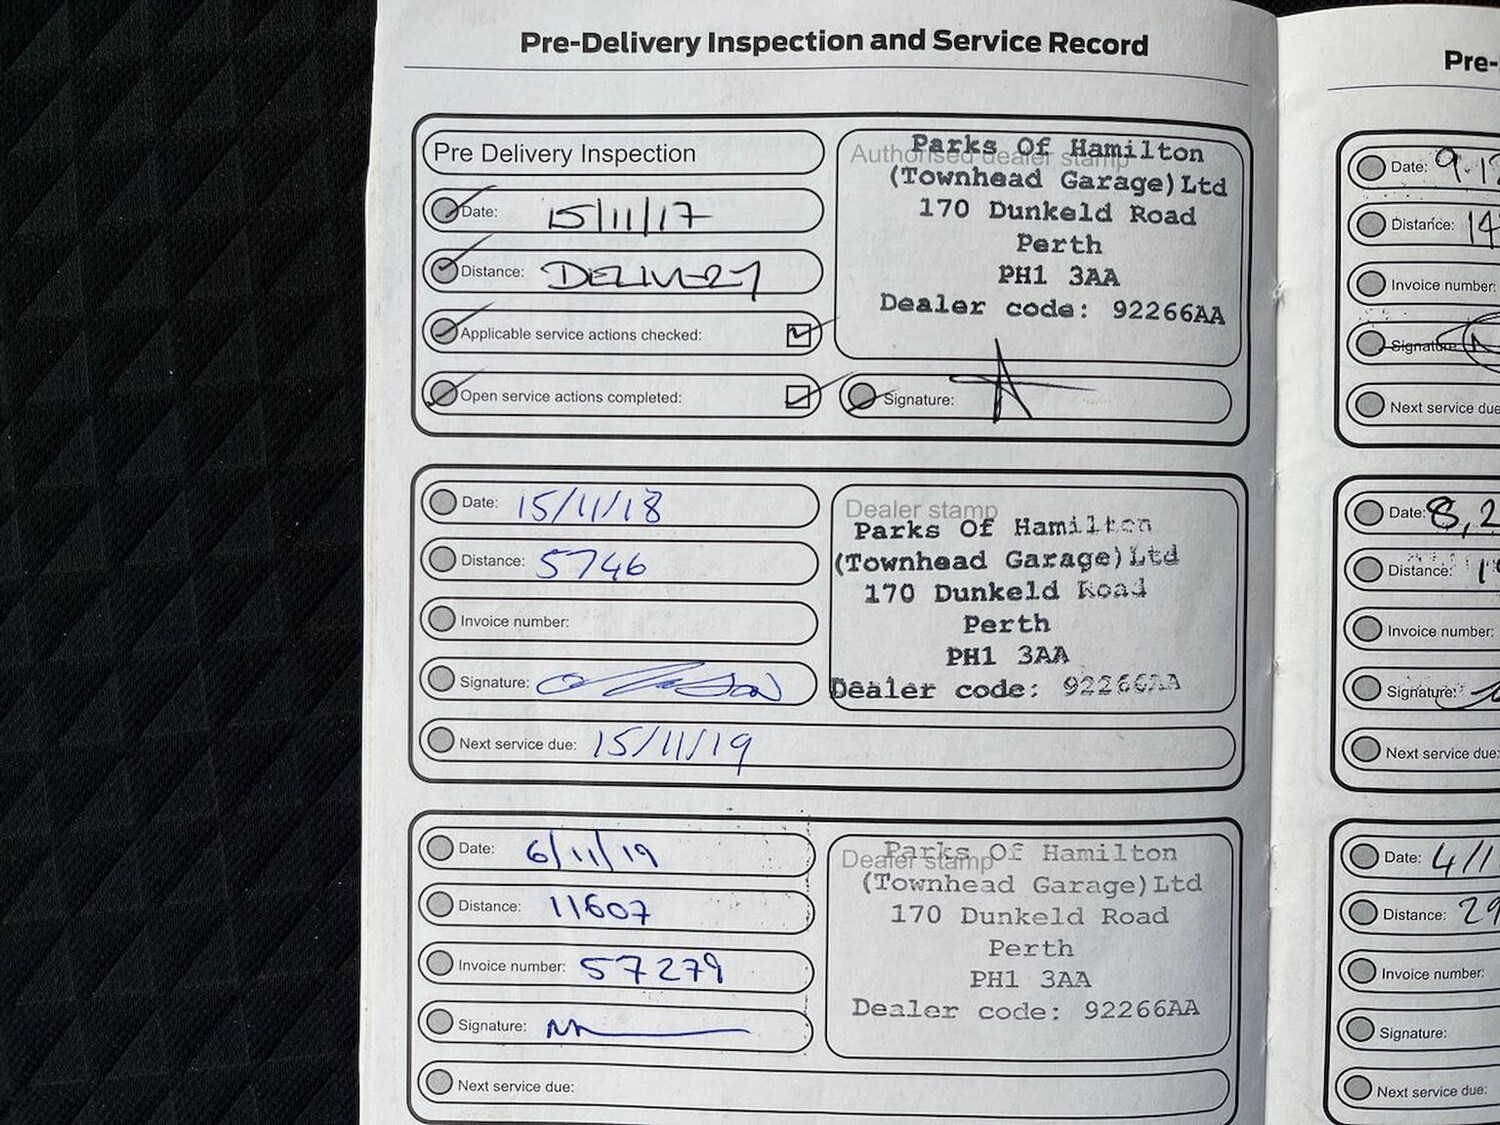 Pre-Delivery Inspection and Service Record
Pre Delivery Inspection
Date: 15/11/17
Distance: DELIVERY
Applicable service actions checked:
Open service actions completed:
Authorised dealer stamp
Parks Of Hamilton
(Townhead Garage)Ltd
170 Dunkeld Road
Perth
PH1 3AA
Dealer code: 92266AA
Signature:
Date: 15/11/18
Distance: 5746
Invoice number:
Signature:
Next service due: 15/11/19
Dealer stamp
Parks Of Hamilton
(Townhead Garage)Ltd
170 Dunkeld Road
Perth
PH1 3AA
Dealer code: 92266AA
Date: 6/11/19
Distance: 11607
Invoice number: 57279
Signature:
Next service due:
Dealer stamp
Parks Of Hamilton
(Townhead Garage)Ltd
170 Dunkeld Road
Perth
PH1 3AA
Dealer code: 92266AA
Pre-
Date: 9.1
Distance: 14
Invoice number:
Signature:
Next service due
Date: 8,2
Distance: 1
Invoice number:
Signature:
Next service due:
Date: 4/1
Distance: 29
Invoice number:
Signature:
Next service due: